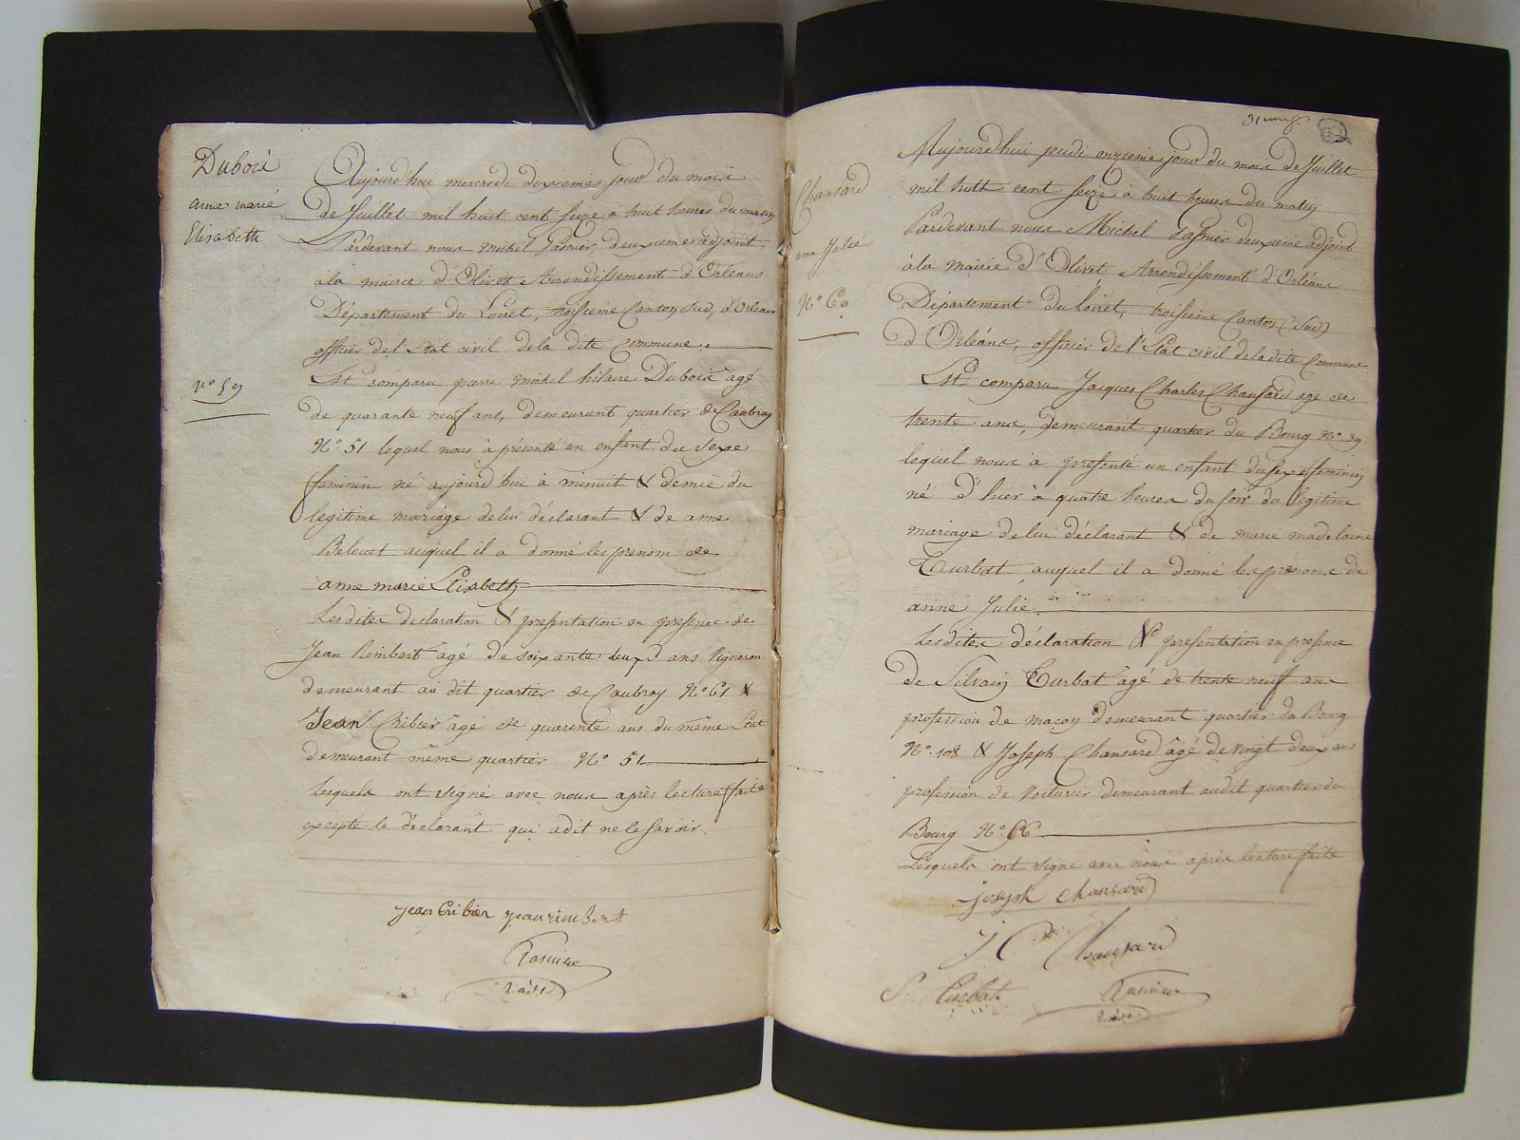 Duboië
anne marie
Elisabeth
N° 59
Aujourd'hui mercredi dixieme jour du mois
de Juillet mil huit cent seize à huit heures du matin
Pardevant nous michel deuxieme adjoint
à la mairie d'Olivet Arrondissement d'Orléans
Département du Loiret, troisieme Canton Sud, d'Orléans
officier de l'Etat civil de la dite Commune.
Est comparu pierre michel hilaire Duboië agé
de quarante neuf ans, demeurant quartier de Caubray
N° 51 lequel nous à présenté un enfant du Sexe
feminin né aujourd'hui à minuit & demie du
legitime mariage de lui déclarant & de anne
auquel il a donné les prenom de
anne marie Elisabeth
Lesdites declaration & presentation en presence de
Jean Rimbert agé de soixante deux ans Vigneron
demeurant au dit quartier de Caubray N° 61 &
Jean Cribier agé de quarente ans du même Etat
demeurant même quartier N° 51
lesquels ont signé avec nous après lecture faite
excepté le déclarant qui a dit ne le savoir.
jean Cribier jean rimbert
Chansard
anne Julie
N° 60
Aujourd'hui jeudi onzieme jour du mois de Juillet
mil huit cent seize à huit heures du matin
Pardevant nous Michel deuxieme adjoint
à la mairie d'Olivet Arrondissement d'Orléans
Département du Loiret, troisieme Canton (Sud)
d'Orléans, officier de l'Etat civil de la dite Commune
Est comparu Jacques Charles Chansard agé de
trente ans, demeurant quartier du Bourg N° 39
lequel nous à presenté un enfant du sexe feminin
né d'hier à quatre heures du soir du légitime
mariage de lui déclarant & de marie madelaine
Turbat auquel il a donné les prénoms de
anne Julie.
Lesdites déclaration & presentation en presence
de Silvain Turbat agé de trente neuf ans
profession de maçon demeurant quartier du Bourg
N° 108 & Joseph Chansard âgé de vingt deux ans
profession de Voiturier demeurant audit quartier du
Bourg N° 66
Lesquels ont signé avec nous après lecture faite
joseph chansard
J C Chansard
S Turbat